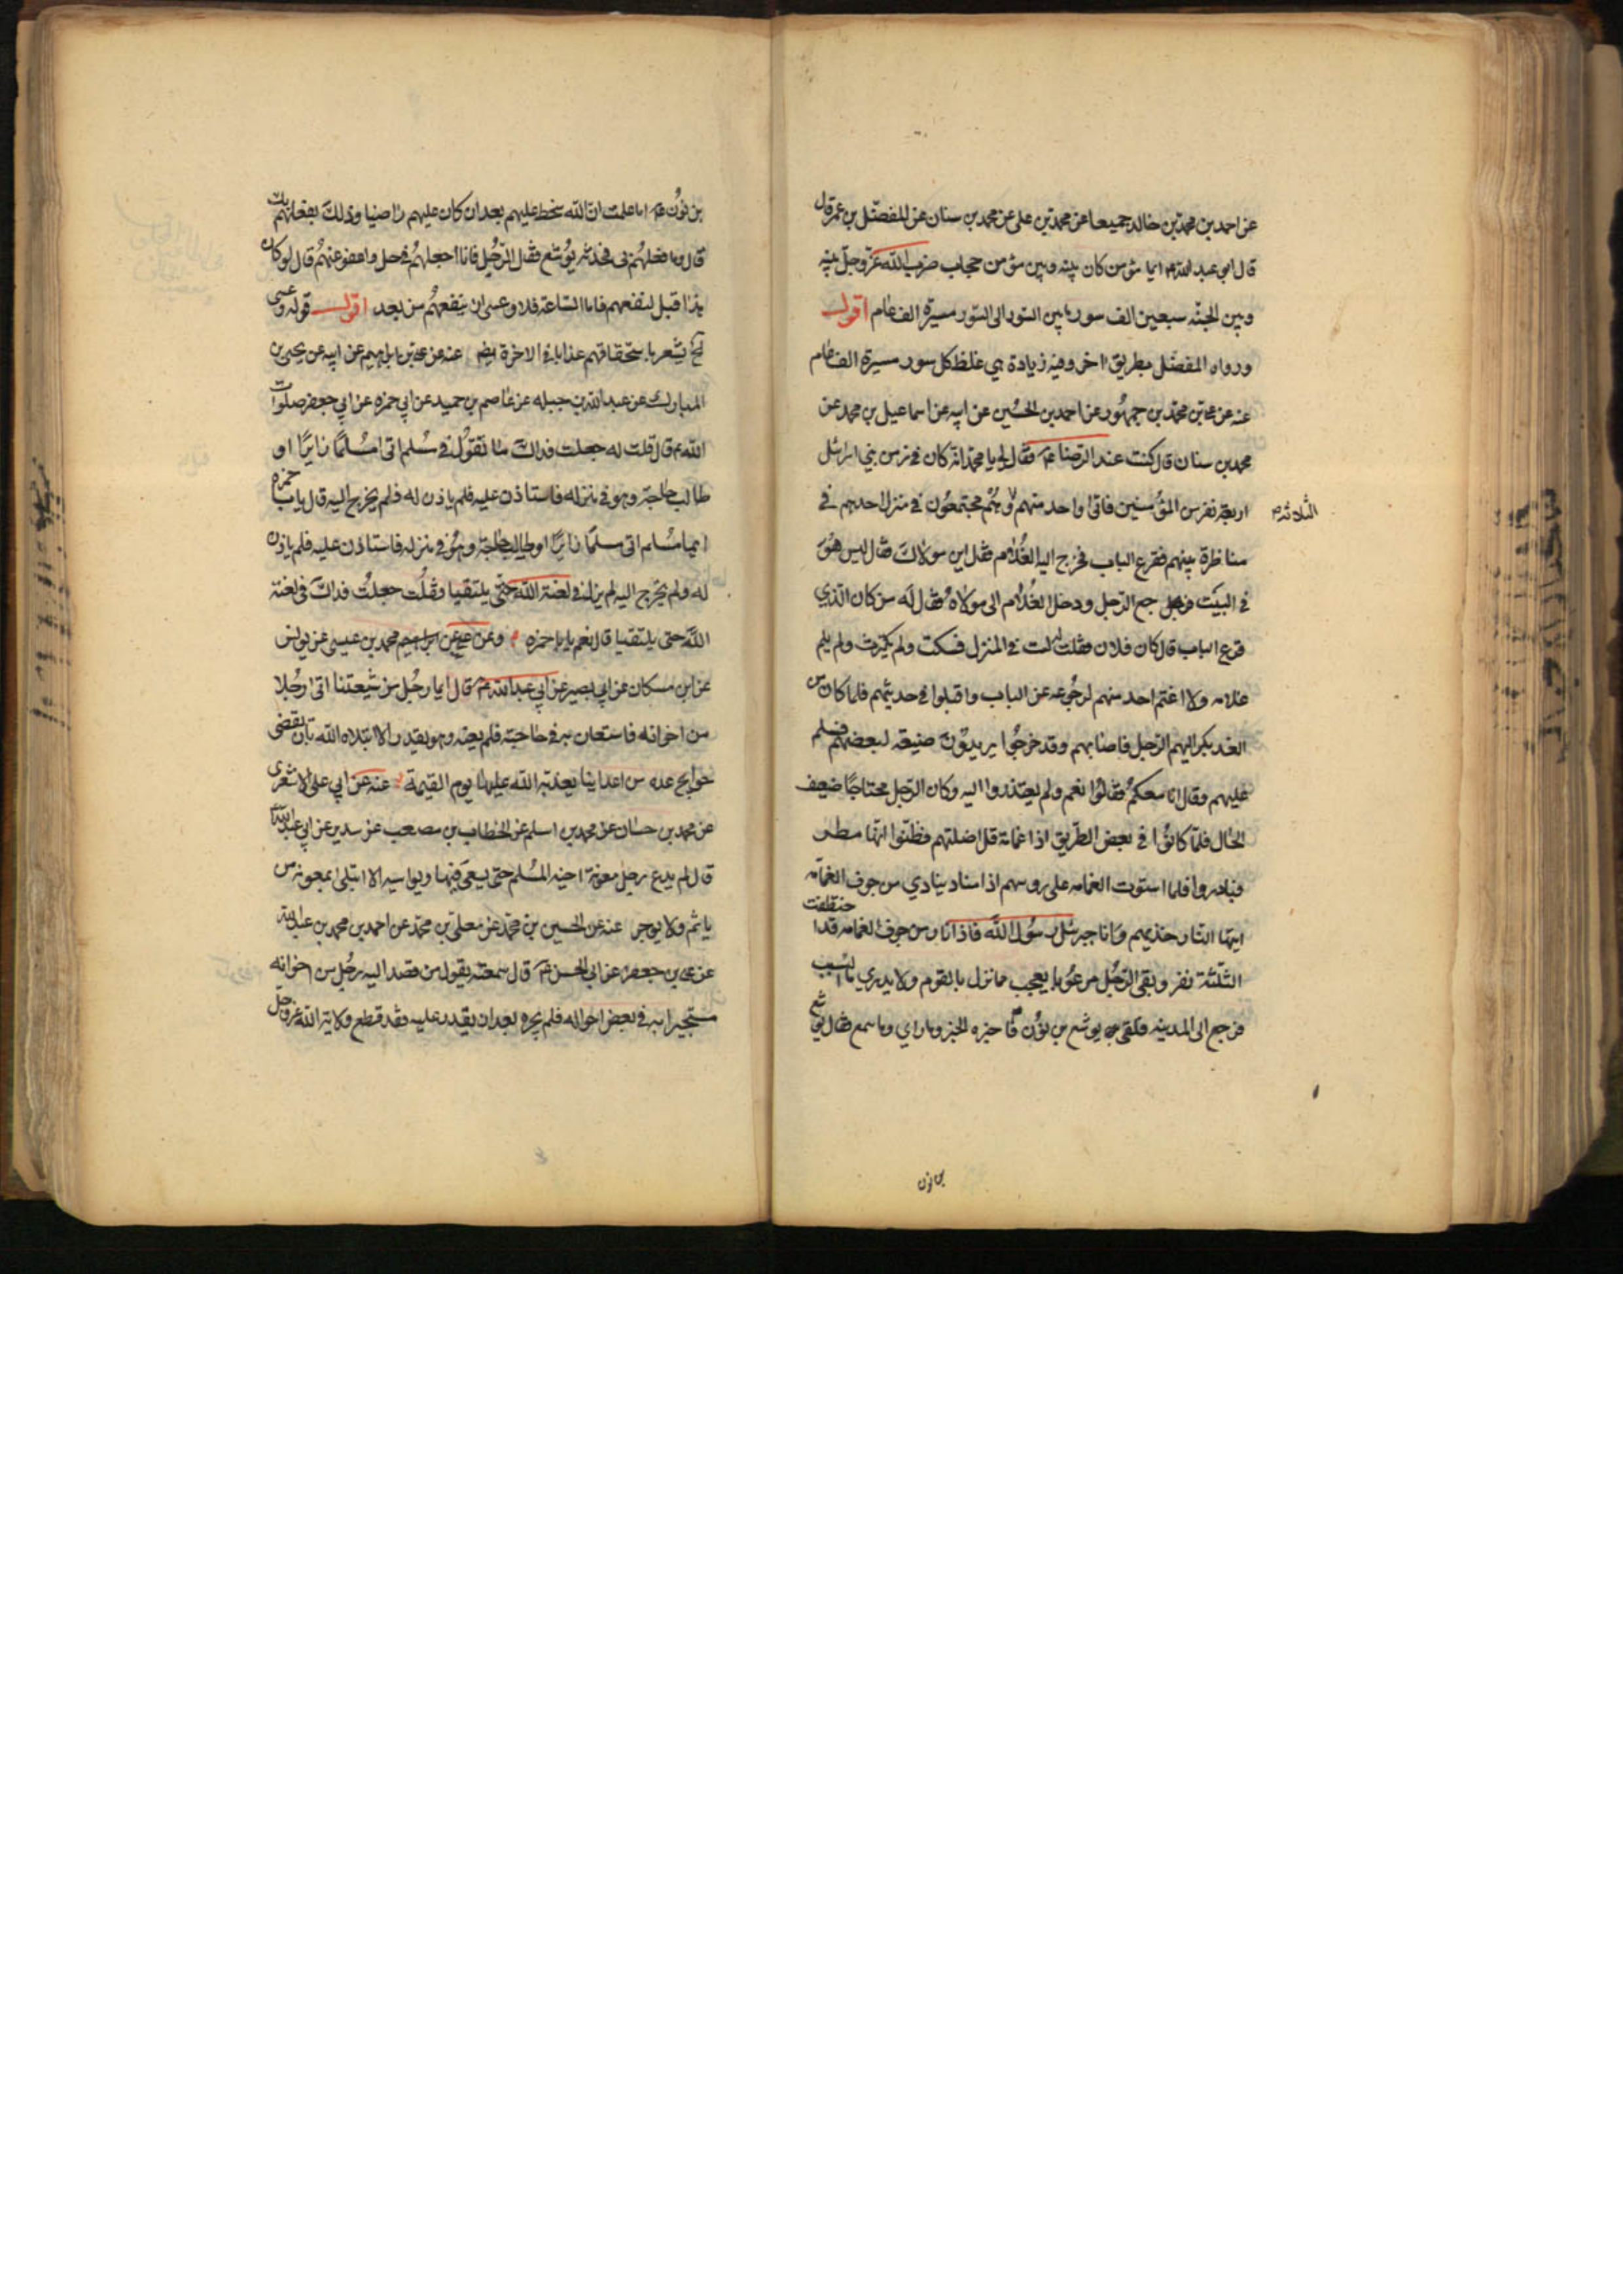 عن احمد بن محمد بن خالد جميعا عن محمد بن علي عن محمد بن سنان عن المفضّل بن عمر قال
قال ابو عبد الله ع ايما مؤمن كان بينه وبين مؤمن حجاب ضرب الله عزّ وجلّ بينه
وبين الجنّه سبعين الف سور ما بين السّور الى السّور مسيرة الف عام اقول
ورواه المفضّل بطريق اخر وفيه زيادة هي غلظ كل سور مسيرة الف عام
عنه عن علي بن محمّد بن جمهُور عن احمد بن الحُسين عن ابيه عن اسماعيل بن محمد عن
محمد بن سنان قال كنت عند الرّضا ع فقال لي يا محمّد انّه كان في زمن بني اسرائيل
اربعة نفر من المؤمنين فاتى واحد منهم وهُم مجتمعُون في منزل احدهم في
الثلاثة
مناظرة بينهم فقرع الباب فخرج اليه الغُلام فقال اين مولاك فقال ليس هُوَ
في البيت فرجع الرّجل ودخل الغُلام الى مولاهُ فقال لَه من كان الّذي
قرع الباب قال كان فلان فقلت له لست في المنزل فسكت ولم يكترث ولم يلم
غلامه ولا اغتم احد منهم لرجُوعه عن الباب واقبلوا في حديثهم فلما كان من
الغد بكر اليهم الرّجل فاصابهم وقد خرجُوا يريدُون ضيعة لبعضهم فسلم
عليهم وقال انا معكمُ فقالُوا نعم ولم يعتذروا اليه وكان الرّجل محتاجًا ضعيف
الحال فلمّا كانُوا في بعض الطّريق اذا غمامة قد اضلتهم فظنّوا انّها مطر
فبادروا فلما استوت الغمامه على روسهم اذا مناد ينادي من جوف الغمامه
ايتها النّار خذيهم وانا جبرئل رسُول الله فاذا نار من جوف الغمامه قد اختطفت
الثلثة نفر وبقى الرّجُل مرعُوبا يعجب مما نزل بالقوم ولا يدري ما السّبب
فرجع الى المدينه فلقى يوشع بن نوُن ع فاخبره الخبر وما راى وما سمع فقال يوشع
بن نون
بن نوُن ع اما علمت انّ الله سخط عليهم بعد ان كان عليهم راضيا وذلك بفعلهم بك
قال وما فعلهُم بي فحدّثه يوُشع فقال الرّجُل فانا اجعلهُم في حل واعفو عنهُم قال لو كان
هذا قبل لنفعهم فاما السّاعة فلا وعسى ان ينفعهُم من بعد اقول قوله وعسى
الخ يشعر باستحقاقهم عذابا في الاخرة ايضا عنه عن علي بن ابراهيم عن ابيه عن يحيى بن
المبارك عن عبد الله بن جبله عن عاصم بن حميد عن ابي حمزه عن ابي جعفر صلوات
الله ع قال قلت له جعلت فداك ما تقوُل في مُسلم اتى مُسلمًا زايرًا او
طالب حاجة وهو في منزله فاستاذن عليه فلم ياذن له ولم يخرج اليه قال يا با حمزه
ايما مُسلم اتى مسلمًا زايرًا او طالب حاجة وهُو في منزله فاستاذن عليه فلم ياذن
له ولم يخرج اليه لم يزل في لعنة الله حتّى يلتقيا فقلُت جعلُت فداك في لعنة
الله حتى يلتقيا قال نعم يا با حمزه وعن علي بن ابراهيم محمد بن عيسى عن يونس
عن ابن مسكان عن ابي بصير عن ابي عبد الله ع قال ايما رجُل من شيعتنا اتى رجُلا
من اخوانه فاستعان به في حاجته فلم يعنه وهو يقدر الا ابتلاه الله بان يقضى
حوايج عده من اعداينا يعذبه الله عليها يوم القيمة عنه عن ابي علي الاشعري
عن محمد بن حسان عن محمد بن اسلم عن الخطاب بن مصعب عن سدير عن ابي عبد الله ع
قال لم يدع رجل معونة اخيه المُسلم حتى يسعى فيها ويواسيه الا ابتلى بمعونة من
ياثم ولا يوجر عنه عن الحسين بن محمّد عن معلى بن محمّد عن احمد بن محمد بن عبد الله
عن علي بن جعفر عن ابي الحسن ع قال سمعته يقول من قصد اليه رجُل من اخوانه
مستجيرا به في بعض احواله فلم يجره بعد ان يقدر عليه فقد قطع ولاية الله عز وجل